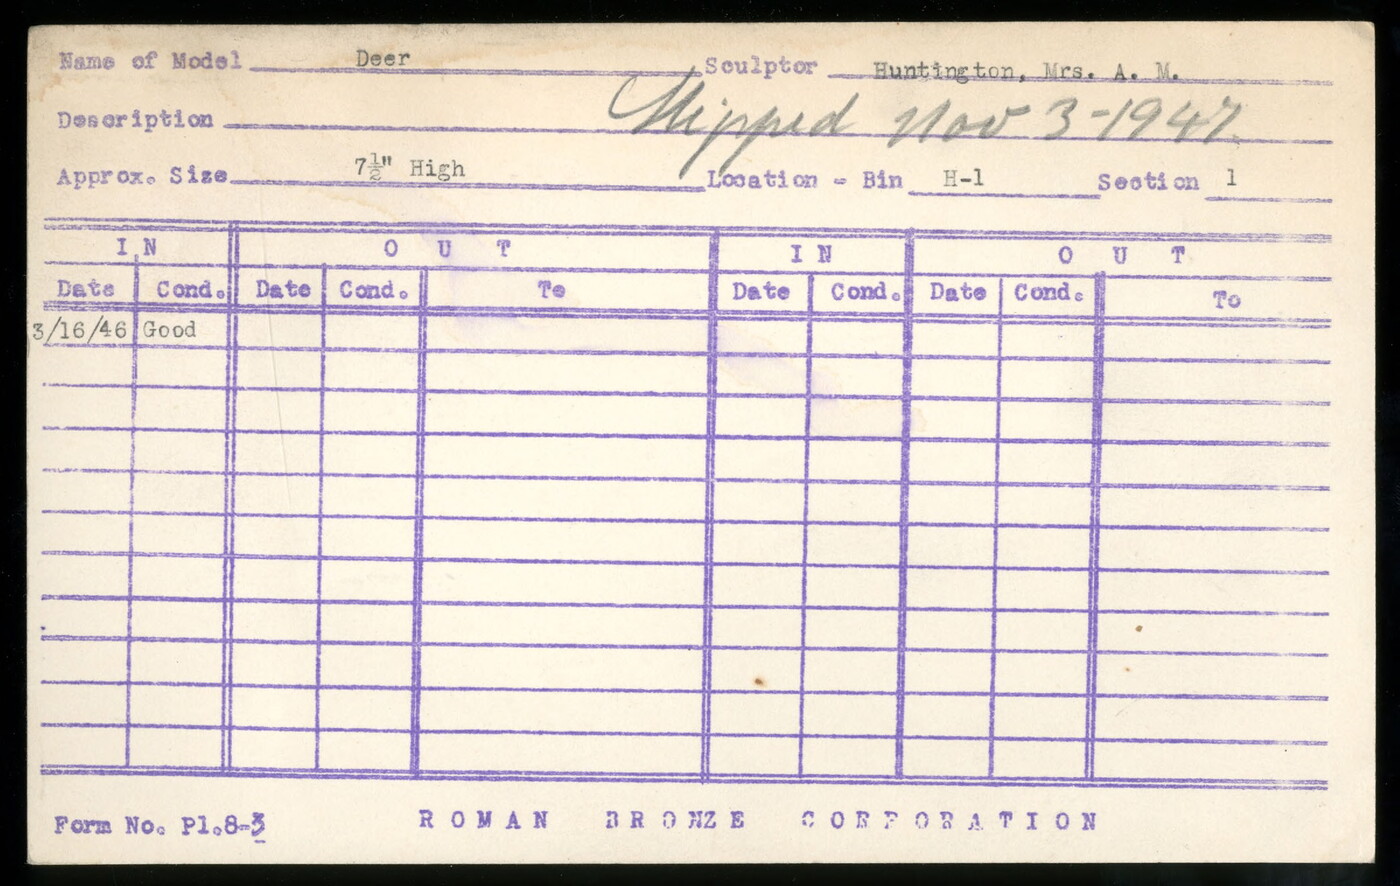 Name of Model Deer Sculptor Huntington, Mrs. A. M.
Description Shipped Nov 3-1947
Approx. Size 7½" High Location - Bin H-1 Section 1
IN OUT IN OUT
Date Cond. Date Cond. To Date Cond. Date Cond. To
3/16/46 Good
Form No. Pl.8-3 ROMAN BRONZE CORPORATION